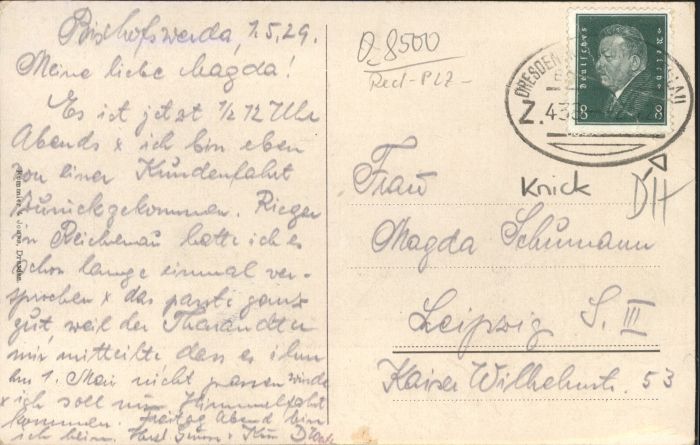 Bischofswerda, 1.5.29.
Meine liebe Magda!
Es ist jetzt ½ 12 Uhr
Abends x ich bin eben
von einer Kundenfahrt
zurückgekommen. Rieger
in Reichenau hatte ich es
schon lange einmal ver-
sprochen x das passte ganz
gut, weil der Tharandter
mir mitteilte dass es ihm
am 1. Mai nicht passen würde
x ich soll nun Himmelfahrt
kommen. Freitag Abend bin
ich beim
Rommler & Jonas, Dresden
0-8500
DRESDEN
Z. 433
Deutsches Reich
8 8
Knick
DH
Frau
Magda Schumann
Leipzig S. III
Kaiser Wilhelmstr. 53